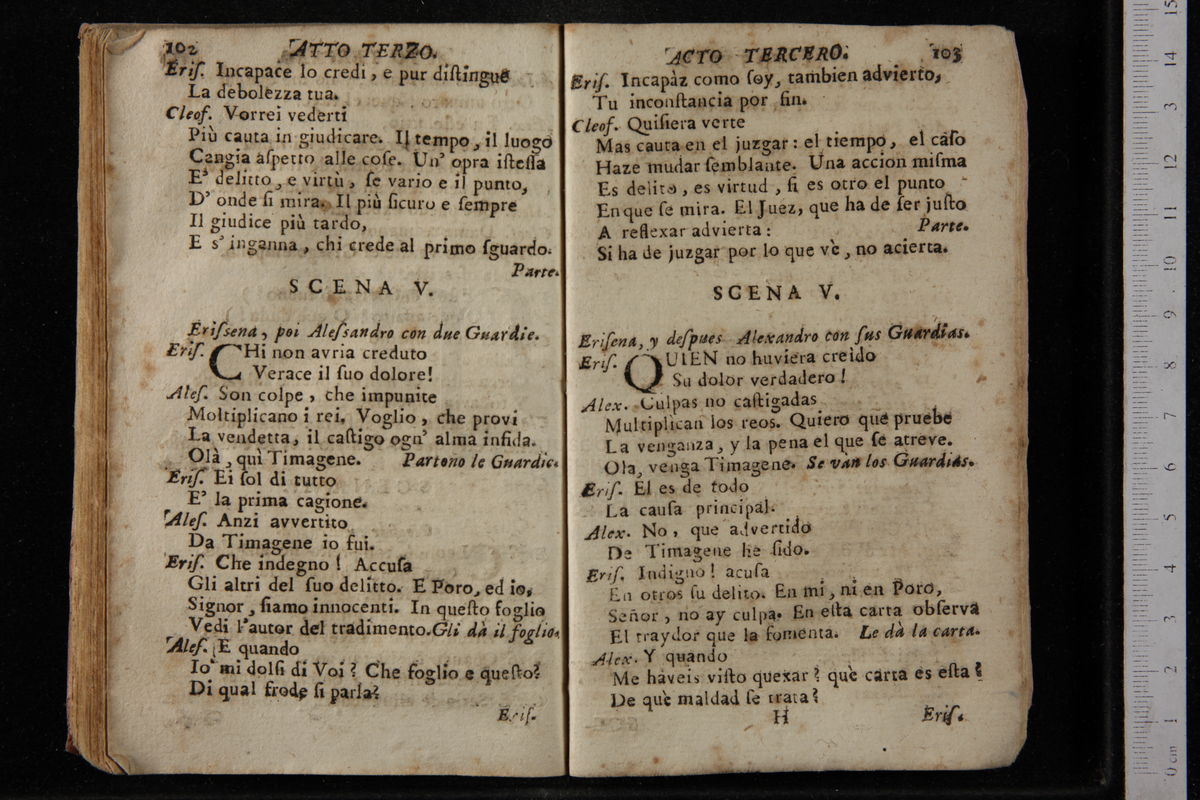 102 ATTO TERZO.
Eriſ. Incapace lo credi, e pur diſtingue
La debolezza tua.
Cleof. Vorrei vederti
Più cauta in giudicare. Il tempo, il luogo
Cangia aſpetto alle coſe. Un' opra iſteſſa
E' delitto, e virtù, ſe vario e il punto,
D' onde ſi mira. Il più ſicuro e ſempre
Il giudice più tardo,
E s' inganna, chi crede al primo ſguardo.
Parte.
SCENA V.
Eriſſena, poi Aleſsandro con due Guardie.
Eriſ. CHi non avria creduto
Verace il ſuo dolore!
Aleſ. Son colpe, che impunite
Moltiplicano i rei. Voglio, che provi
La vendetta, il caſtigo ogn' alma infida.
Olà, quì Timagene. Partono le Guardie.
Eriſ. Ei ſol di tutto
E' la prima cagione.
Aleſ. Anzi avvertito
Da Timagene io fui.
Eriſ. Che indegno! Accuſa
Gli altri del ſuo delitto. E Poro, ed io,
Signor, ſiamo innocenti. In queſto foglio
Vedi l'autor del tradimento. Gli dà il foglio.
Aleſ. E quando
Io mi dolſi di Voi? Che foglio e queſto?
Di qual frode ſi parla?
Eriſ.
ACTO TERCERO. 103
Eriſ. Incapàz como ſoy, tambien advierto,
Tu inconſtancia por fin.
Cleof. Quiſiera verte
Mas cauta en el juzgar: el tiempo, el caſo
Haze mudar ſemblante. Una accion miſma
Es delito, es virtud, ſi es otro el punto
En que ſe mira. El Juez, que ha de ſer juſto
A reflexar advierta: Parte.
Si ha de juzgar por lo que vè, no acierta.
SCENA V.
Eriſena, y deſpues Alexandro con ſus Guardias.
Eriſ. QUIEN no huviera creido
Su dolor verdadero!
Alex. Culpas no caſtigadas
Multiplican los reos. Quiero que pruebe
La venganza, y la pena el que ſe atreve.
Ola, venga Timagene. Se vàn los Guardias.
Eriſ. El es de todo
La cauſa principal.
Alex. No, que advertido
De Timagene he ſido.
Eriſ. Indigno! acuſa
En otros ſu delito. En mi, ni en Poro,
Señor, no ay culpa. En eſta carta obſerva
El traydor que la fomenta. Le dà la carta.
Alex. Y quando
Me haveis viſto quexar? què carta es eſta?
De què maldad ſe trata?
H Eriſ.
15
14
3
12
11
10
9
8
7
6
5
4
3
2
1
0 cm